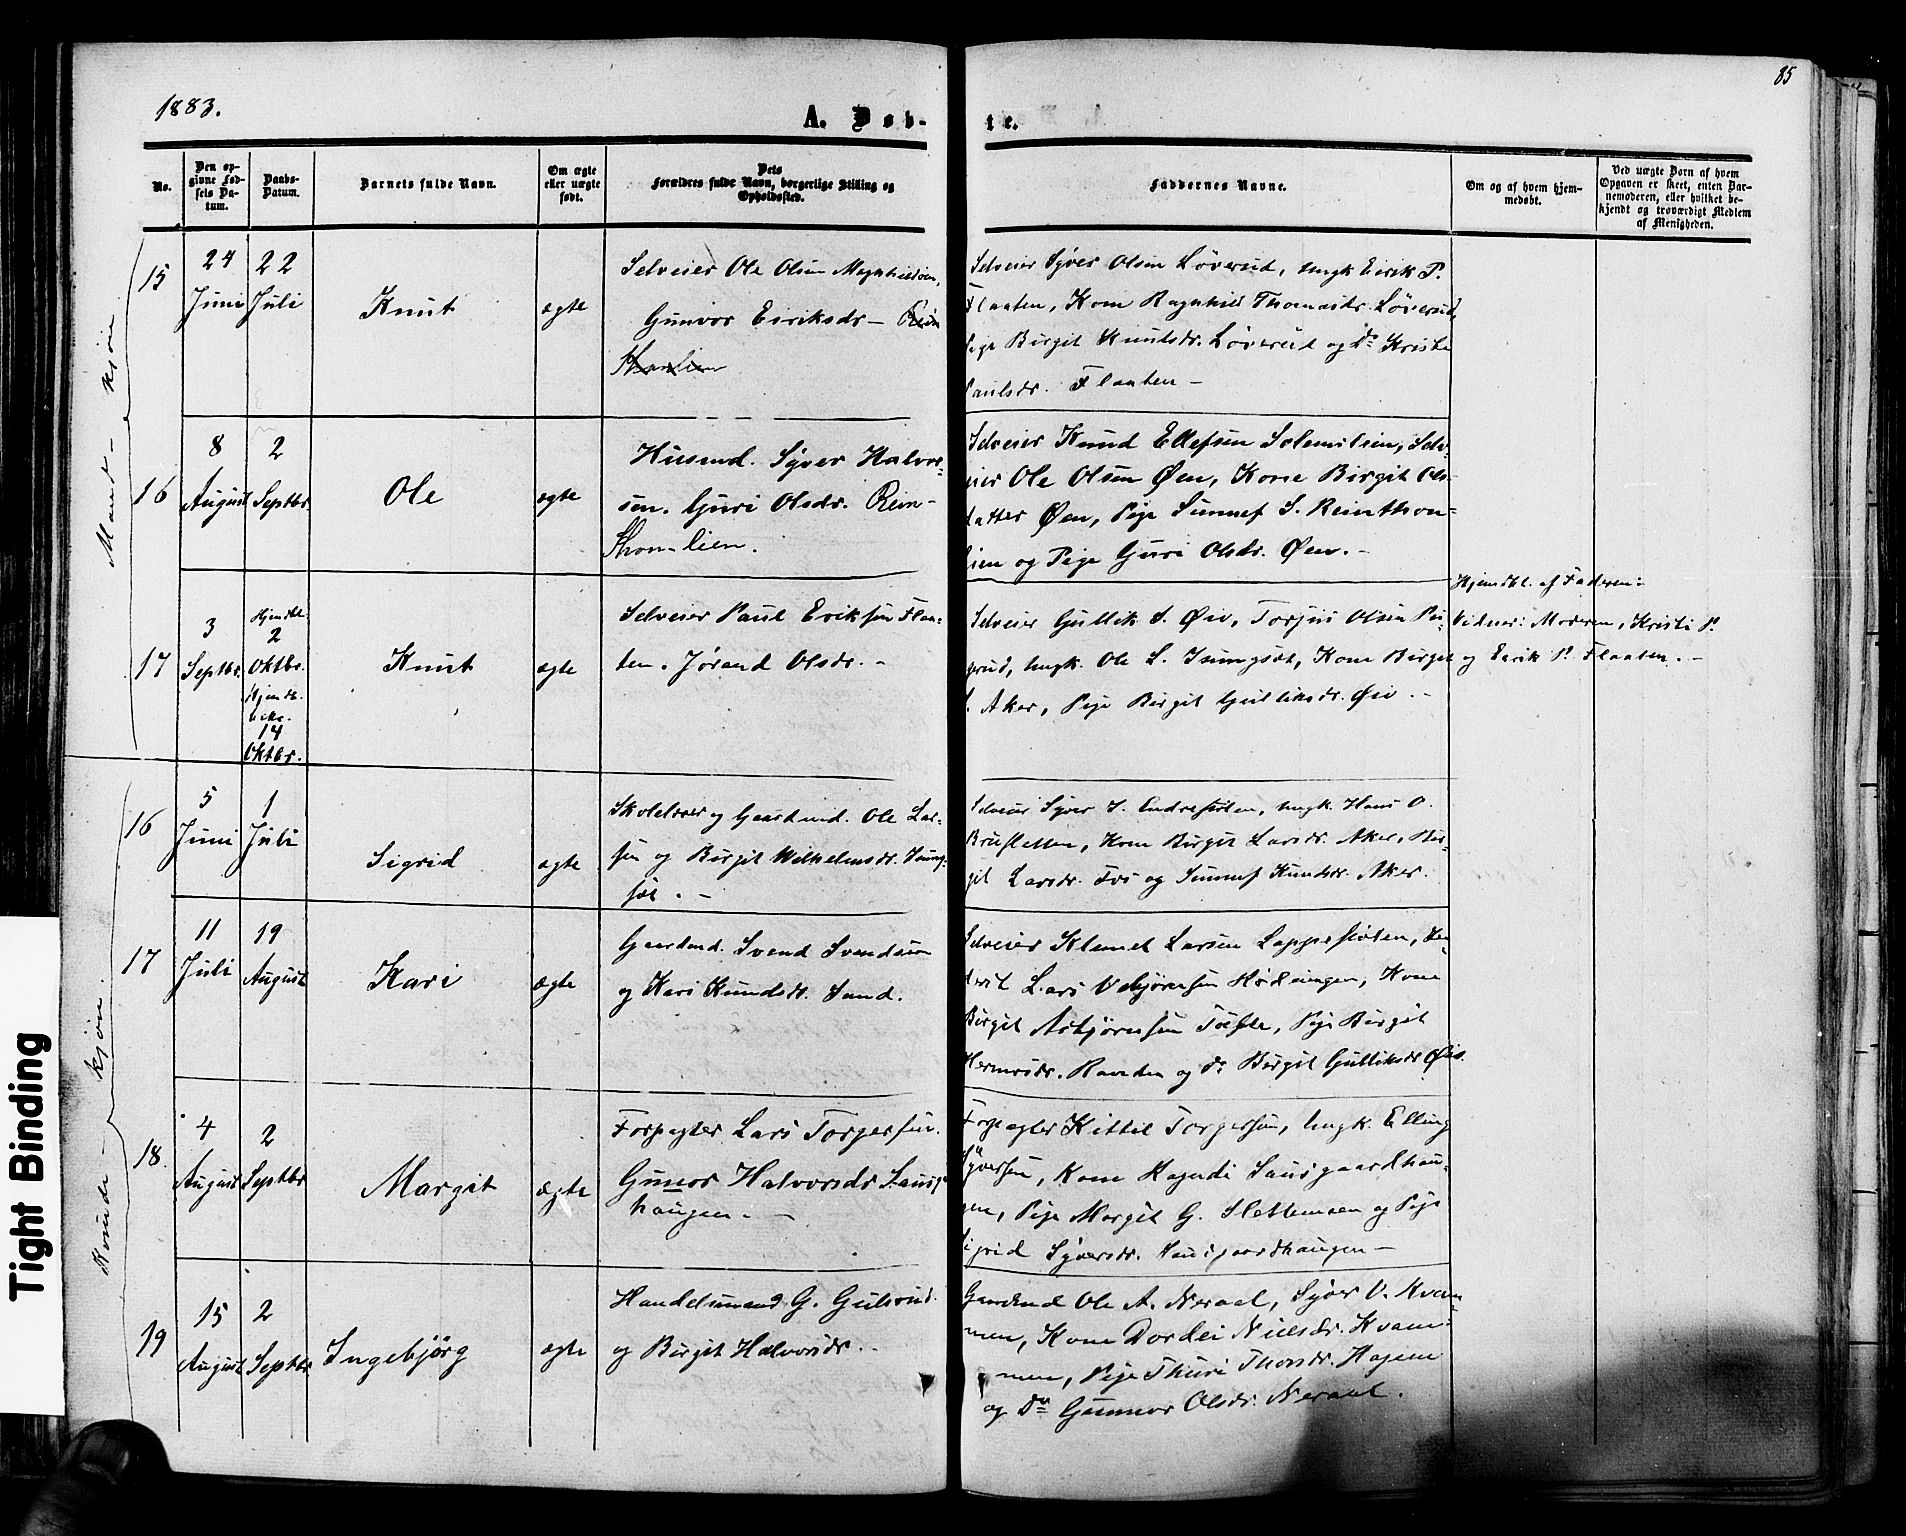 1883.
85
A. Døb-
te.
No.
Den op-
givne Fød-
sels Da-
tum.
Daabs-
Datum.
Barnets fulde Navn.
Om ægte
eller uægte
født.
Dets
Forældres fulde Navn, borgerlige Stilling og
Opholdssted.
Faddernes Navne.
Om og af hvem hjem-
medøbt.
Ved uægte Børn af hvem
Opgaven er skeet, enten Bar-
nemoderen, eller hvilket be-
kjendt og troværdigt Medlem
af Menigheden.
Mand-kjøn
15
24
Juni
22
Juli
Knut
ægte
Selveier Ole Olsen
Gunvor Eiriksdr -
Selveier Syver Olsen Løverud, Ungk Eirik P.
Flaaten, Kone Ragnhild Thomasdr Løverud,
Pige Birgit Knutsdr. Løverud og do Kristi
Paulsdr. Flaaten -
16
8
August
2
Septbr.
Ole
ægte
Husmd. Syver Halvor-
sen. Guri Olsdr. Rein-
thon-lien.
Selveier Knud Ellefsen, Selv-
eier Ole Olsen Øen, Kone Birgit Ols-
datter Øen, Pige Sunnef S. Reinthon-
lien og Pige Guri Olsdr. Øen. -
17
3
Septbr.
Hjemdbt.
2
Oktbr.
14
Oktbr.
Knut
ægte
Selveier Paul Eriksen Flaa-
ten. Jørand Olsdr. -
Selveier Gullik S. Øiv, Torjus Olsen
Ungk. Ole L. Kone Birget
Aker, Pige Birgit Gulliksdr. Øiv -
Hjemdbt. af Faderen:
Vidner: Moderen, Kristi P.
og Eirik P. Flaaten. -
Kvinde-kjøn.
16
5
Juni
1
Juli
Sigrid
ægte
Skolelærer og Gaardmd. Ole Lar-
sen og Birgit Wilhelmsdr.
Selveier Syver Ungk. Hans O.
Kone Birgit Larsdr. Aker, Bir-
git Larsdr. og Sunnef Knudsdr. Aker.
17
11
Juli
19
August
Kari
ægte
Gaardmd. Svend Svendsen
og Kari Knudsdr. Sand.
Selveier Klemet Larsen
Lars Kone
Birgit Pige Birgit
og do Birgit Gulliksdr Øiv.
18
4
August
2
Septbr
Margit
ægte
Forpagter Lars Torgersen.
Gunvor Halvorsdr
haugen. -
Forpagter Kittil Torgersen, Ungk. Elling
Syversen, Kone
gen, Pige Margit G. Slettemoen og Pige
Sigrid Syversdr.
19
15
August
2
Septbr
Ingebjörg
ægte
Handelsmand G. Gulsvid
og Birgit Halvorsdr.
Gaardmd Ole A. Neraal, Syver V. Kvem-
men, Kone Dordei Nielsdr. Kvem-
men, Pige Thuri Thorsdr. Hagene
og do Gunnor Olsdr. Neraal.
Tight Binding